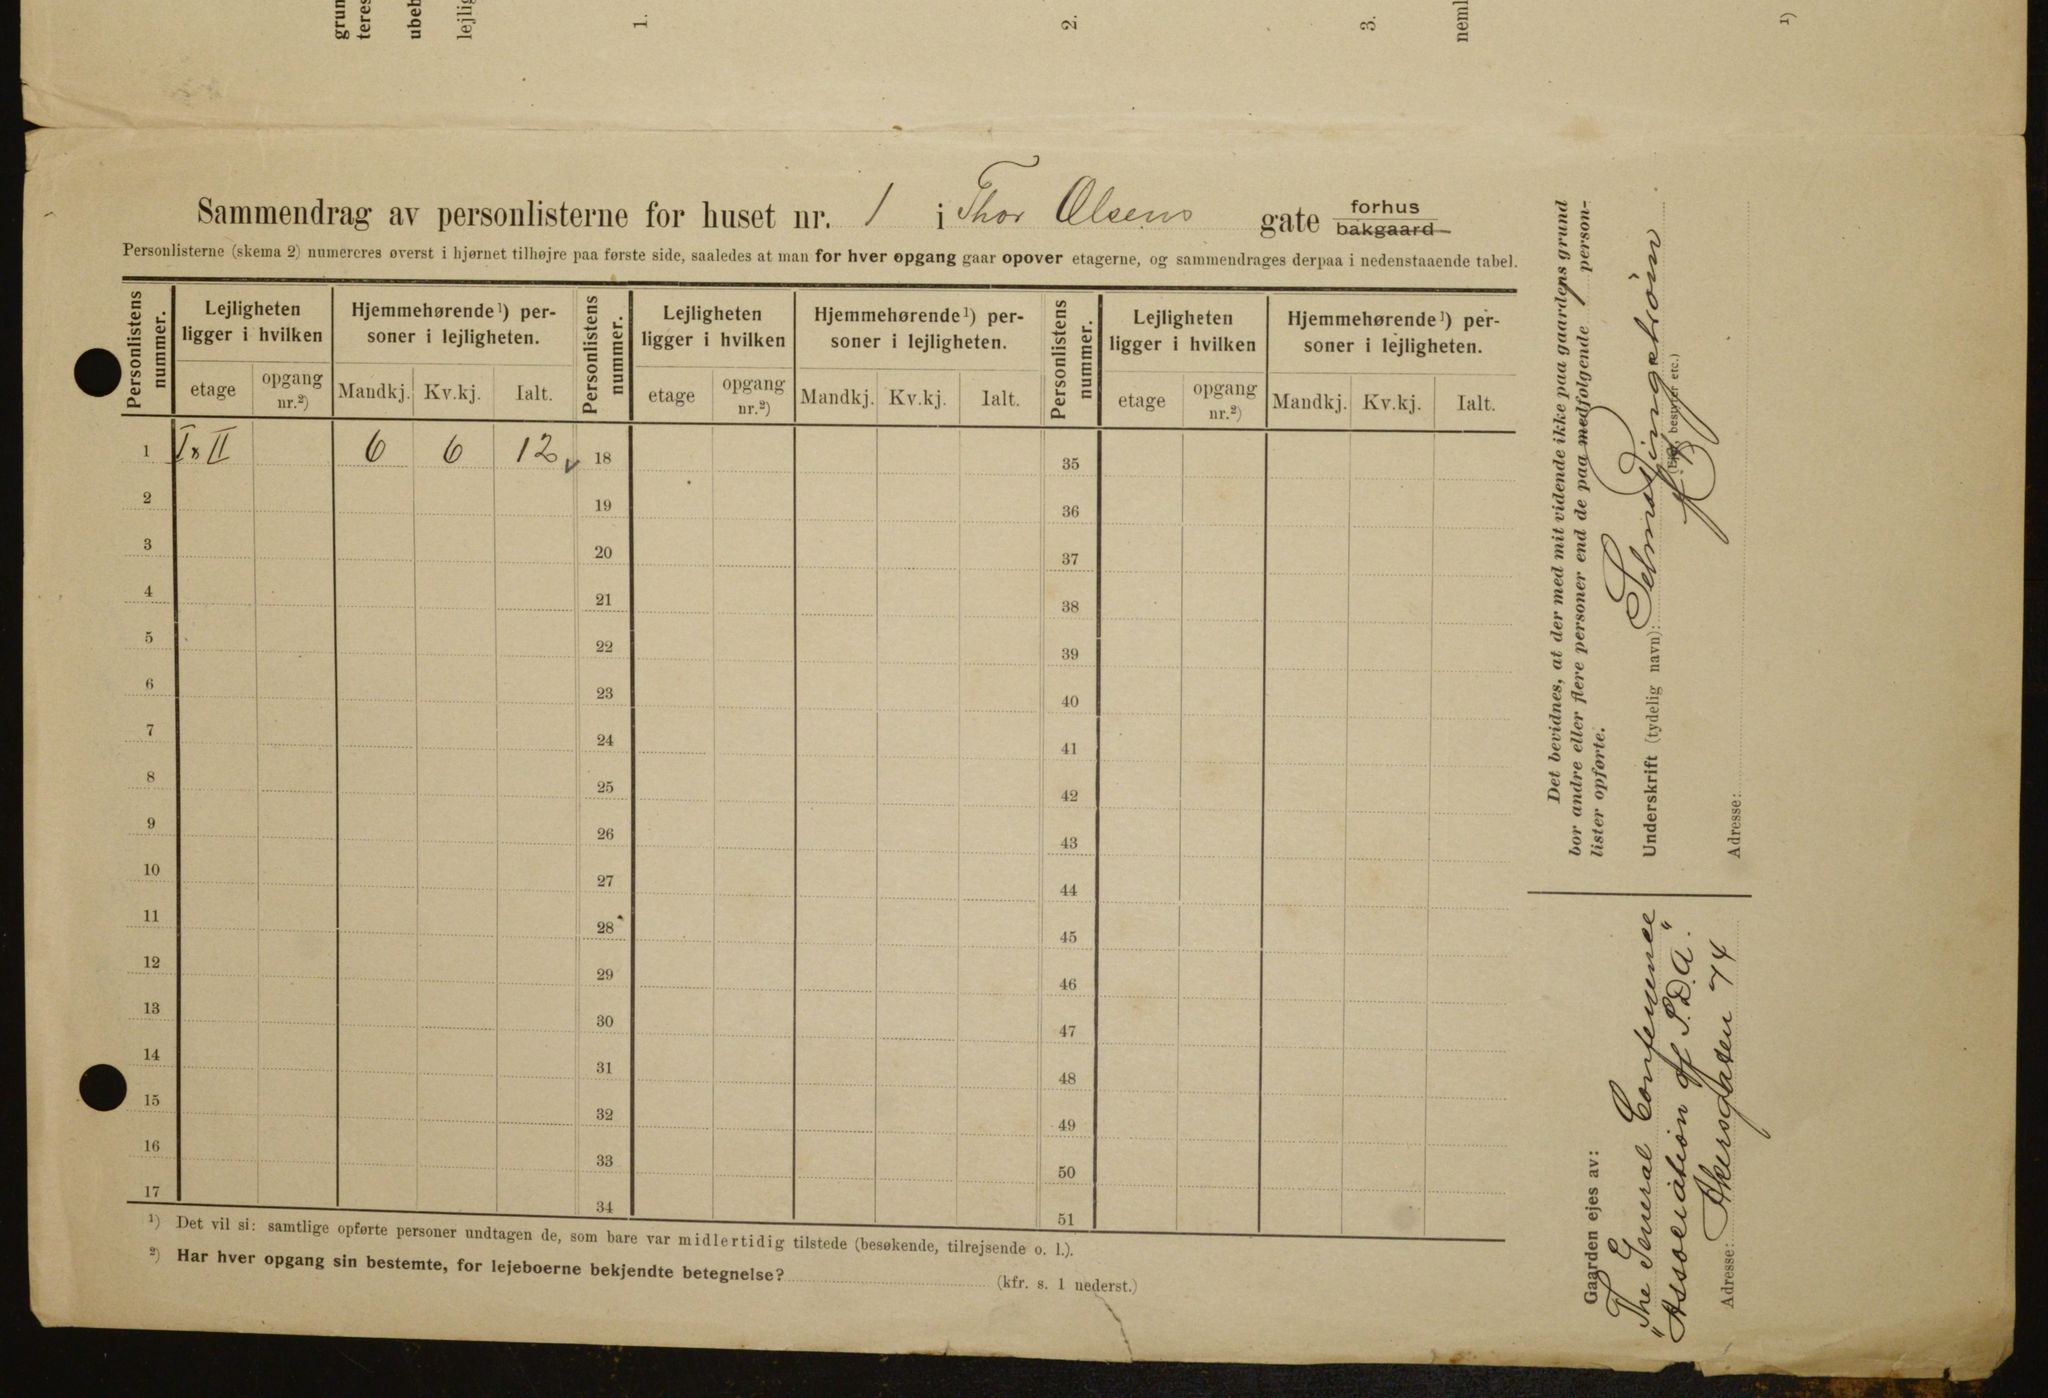 grun
teres
ubeb
lejlig
1.
2.
3.
neml
1)
Sammendrag av personlisterne for huset nr. 1 i Thor Olsens gate forhus
bakgaard
Personlisterne (skema 2) numereres øverst i hjørnet tilhøjre paa første side, saaledes at man for hver opgang gaar opover etagerne, og sammendrages derpaa i nedenstaaende tabel.
Personlistens nummer. Lejligheten ligger i hvilken Hjemmehørende 1) personer i lejligheten. Personlistens nummer. Lejligheten ligger i hvilken Hjemmehørende 1) personer i lejligheten. Personlistens nummer. Lejligheten ligger i hvilken Hjemmehørende 1) personer i lejligheten.
etage opgang nr.2) Mandkj. Kv.kj. Ialt. etage opgang nr.2) Mandkj. Kv.kj. Ialt. etage opgang nr.2) Mandkj. Kv.kj. Ialt.
1 I & II 6 6 12 18 35
2 19 36
3 20 37
4 21 38
5 22 39
6 23 40
7 24 41
8 25 42
9 26 43
10 27 44
11 28 45
12 29 46
13 30 47
14 31 48
15 32 49
16 33 50
17 34 51
1) Det vil si: samtlige opførte personer undtagen de, som bare var midlertidig tilstede (besøkende, tilrejsende o. l.).
2) Har hver opgang sin bestemte, for lejeboerne bekjendte betegnelse? (kfr. s. 1 nederst.)
Det bevidnes, at der med mit vidende ikke paa gaardens grund
bor andre eller flere personer end de paa medfølgende 1 person-
lister opførte.
Underskrift (tydelig navn):
(Ejer, bestyrer etc.)
Adresse:
Gaarden ejes av:
"The General Conference
Association of S.D.A."
Adresse: Akersgaten 74